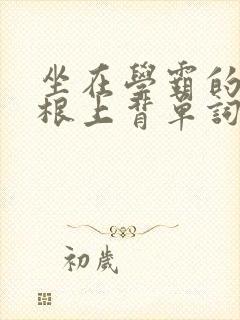 坐在學霸的
根上背單詞
初歲